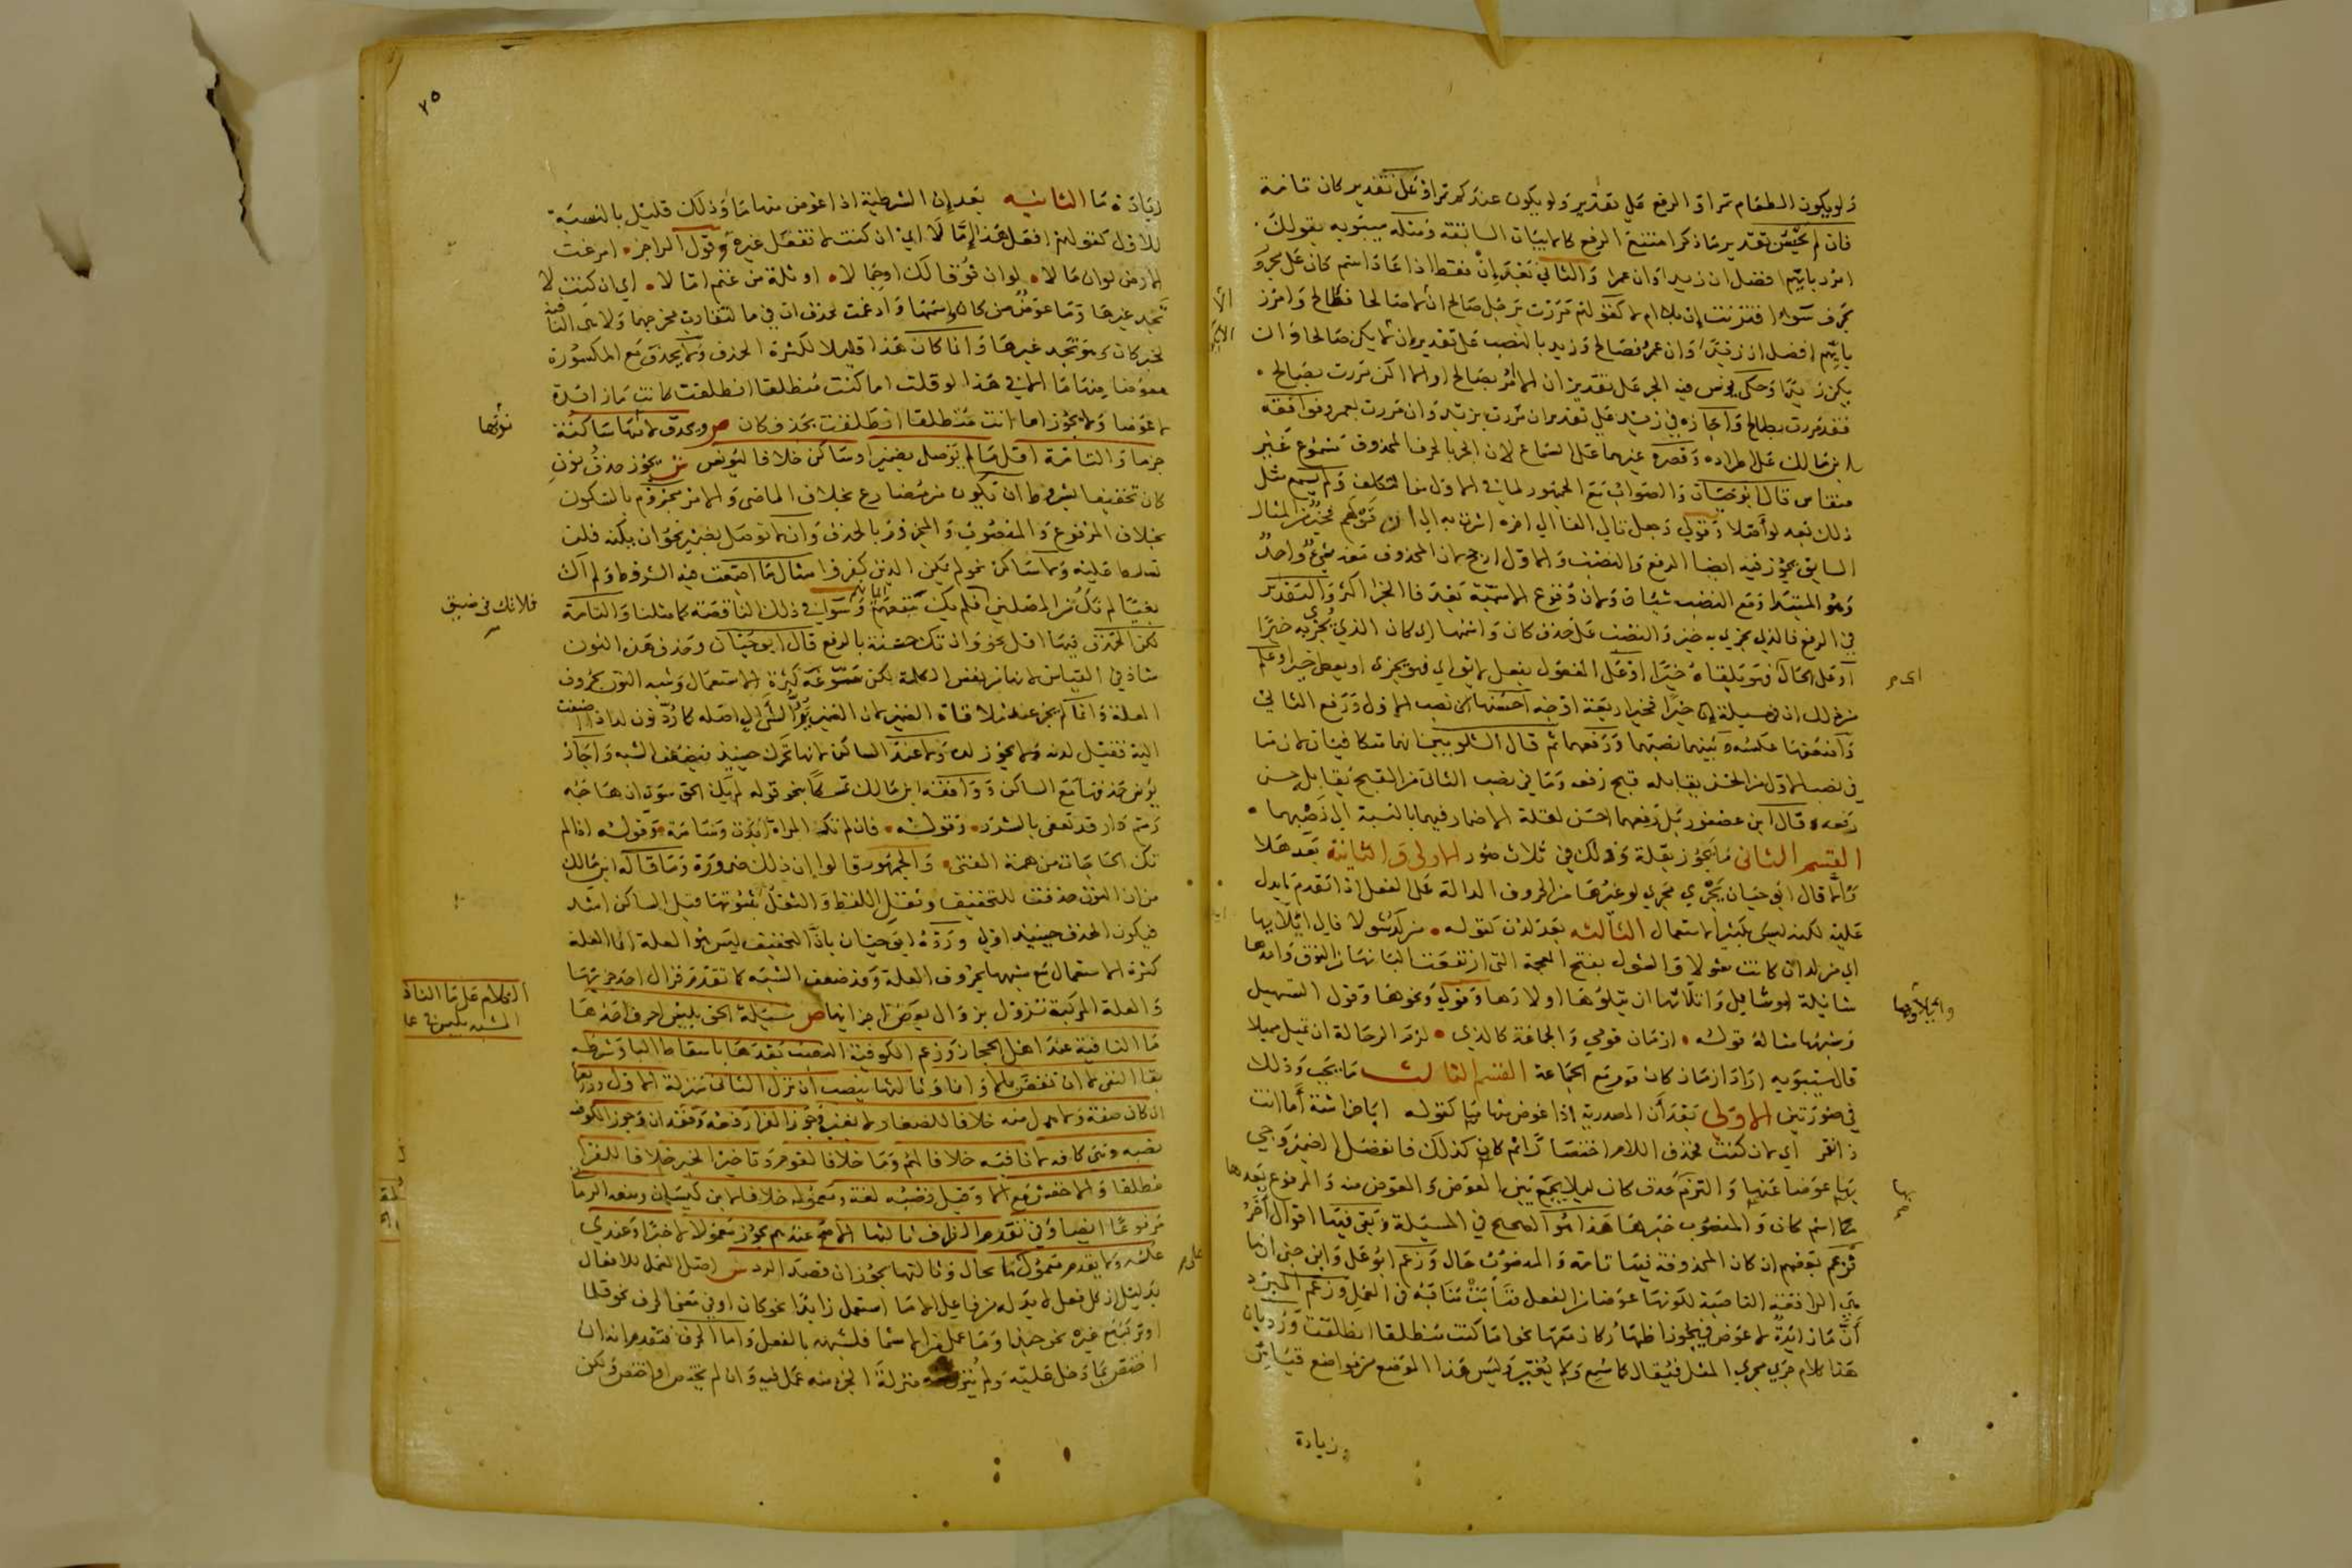 ولو يكون الطعام تمرا والرفع على تقدير ولو يكون عندكم تمر او على تقدير كان تامة
فان لم يحسن تقدير ما ذكر امتنع الرفع كالابيات السابقة ومثله سيبويه بقولك
امرر بايهم افضل ان زيد وان عمرو والثاني بعد ان فقط اذا عاد اسم كان على مجرور
بحرف سواء اقترنت ان بلا ام لا كقولهم مررت برجل صالح ان لا صالحا فطالح وامرر
بايهم افضل ان زيد وان عمرو فصالح وزيد بالنصب على تقدير ان لا يكن صالحا وان
يكن زيدا وحكى يونس فيه الجر على تقدير ان لا امر بصالح او الا اكن مررت بصالح
فقد مررت بطالح واجازه في زيد على تقدير ان مررت بزيد وان مررت بعمرو فوافقه
ابن مالك على اطراده وقصره غيرهما على السماع لان الجر بالحرف المحذوف مسموع غير
منقاس قال ابو حيان والصواب مع الجمهور لما في الاول من التكلف ولم يسمع مثل
ذلك بعد لو اصلا وقولي وجعل تالي الفا الى اخره اشرت به الى ان قولهم فخير من المثال
السابق يجوز فيه ايضا الرفع والنصب والاول ارجح لان المحذوف معه شيء واحد
وهو المبتدا ومع النصب شيئان ولان وقوع الاسمية بعد فا الجزا اكثر والتقدير
في الرفع فالذي يجزى به خير والنصب على حذف كان واسمها اي كان الذي يجزى به خيرا
او على الحال فهو يلقاه خيرا او على المفعول بفعل لايق اي فهو يجزى او يعطى خيرا وعلم
من ذلك ان في مسيلة ان خيرا فخير اربعة اوجه احسنها نصب الاول ورفع الثاني
واضعفها عكسه وبينهما نصبهما ورفعهما ثم قال الشلوبين انهما متكافيان لان ما
في نصب الاول من الحسن يقابله قبح رفعه وما في نصب الثاني من القبح يقابل حسن
رفعه وقال ابن عصفور بل رفعهما احسن لقلة الاضمار فيهما بالنسبة الى نصبهما
القسم الثاني ما يجوز بقلة وذلك في ثلاث صور الاولى والثانية بعد هلا
والا قال ابو حيان يجري مجرى لو غيرها من الحروف الدالة على الفعل اذا تقدم ما يدل
عليه لكنه ليس بكثير الاستعمال الثالثه بعد لدن كقوله من لد شولا فالى اتلايها
اي من لد ان كانت شولا والشول بفتح المعجمة التي ارتفعت البانها من النوق واحدها
شائلة وشايل واتلائها ان يتلوها اولادها وقولي ونحوها وقول التسهيل
وشبهها مثاله قوله ازمان قومي والجماعة كالذي لزم الرحالة ان تميل مميلا
قال سيبويه اراد ازمان كان قومي مع الجماعة القسم الثالث ما يجب وذلك
في صورتين الاولى بعد ان المصدرية اذا عوض منها ما كقوله ابا خراشة اما انت
ذا نفر اي لان كنت فحذف اللام اختصارا ثم كان كذلك فانفصل الضمير وجي
بما عوضا عنها والتزم حذف كان ليلا يجمع بين العوض والمعوض منه والمرفوع بعدها
ما اسم كان والمنصوب خبرها هذا هو الصحيح في المسيلة وبقي فيها اقوال اخر
فزعم بعضهم ان كان المحذوفة فيها تامة والمنصوب حال وزعم ابو علي وابن جني انها
هي الرافعة الناصبة لكونها عوضا من الفعل فنابت منابه في العمل وزعم المبرد
ان ما زائدة لا عوض فيجوز اظهار كان معها نحو اما كنت منطلقا انطلقت ورد بان
هذا كلام جرى مجرى المثل فيقال كما سمع ولا يغير وليس هذا الموضع من مواضع قياس
زيادة
واتلاؤها
٢٥
زيادة ما الثانيه بعد ان الشرطية اذا عوض منها ما وذلك قليل بالنسبة
للاول كقولهم افعل هذا اما لا اي ان كنت لا تفعل غيره وقول الراجز امرعت
الارض لو ان مالا لو ان نوقا لك او جمالا او ثلة من غنم اما لا اي ان كنت لا
تجد غيرها وما عوض من كان واسمها وادغمت بحذف ان في ما لتقارب مخرجهما ولا هي النافية
لخبر كان وهو تجد غيرها وانما كان هذا قليلا لكثرة الحذف ولا يحذف مع المكسورة
معوضا منها ما الا في هذا لو قلت اما كنت منطلقا انطلقت كانت ما زائدة
لا عوضا ولا يجوز اما انت منطلقا انطلقت بحذف كان ص ويحذف لامها ساكنة
جزما والتامة اقل ما لم توصل بضمير او ساكن خلافا ليونس ش يجوز حذف نون
كان تخفيفا بشروط ان تكون من مضارع بخلاف الماضي والامر مجزوم بالسكون
بخلاف المرفوع والمنصوب والمجزوم بالحذف وان لا توصل بضمير نحو ان يكنه فلن
تسلط عليه ولا ساكن نحو لم يكن الذين كفروا مثال ما اجتمعت فيه الشروط ولم اك
بغيا لم نك من المصلين فلم يك ينفعهم وسواء في ذلك الناقصة كما مثلنا والتامة
لكن الحذف فيها اقل نحو وان تك حسنة بالرفع قال ابو حيان وحذف هذه النون
شاذ في القياس لانها من نفس الكلمة لكن سوغه كثرة الاستعمال وشبه النون بحروف
العلة وانما لم يجز عند ملاقاة الضمير لان الضمير يرد الشي الى اصله كما رد نون لد اذا اضيفت
اليه فقيل لدنه ولا يجوز لده ولا عند الساكن لانها تحرك حينيذ فيضعف الشبه واجاز
يونس حذفها مع الساكن ووافقه ابن مالك تمسكا بنحو قوله لم يك الحق سوى ان هاجه
رسم دار قد تعفى بالسرر وقوله فان لم تك المراة ابدت وسامة وقوله اذا لم
تك الحاجات من همة الفتى والجمهور قالوا ان ذلك ضرورة وما قاله ابن مالك
من ان النون حذفت للتخفيف وثقل اللفظ والثقل بثبوتها قبل الساكن اشد
فيكون الحذف حينيذ اولى ورده ابو حيان بان التخفيف ليس هو العلة انما العلة
كثرة الاستعمال مع شبهها بحروف العلة وقد ضعف الشبه كما تقدم فزال احد جزئيها
والعلة المركبة تزول بزوال بعض اجزائها ص مسيلة الحق بليس احرف احدها
ما النافية عند اهل الحجاز وزعم الكوفية النصب بعدها باسقاط الباء وشرطه
بقا النفي لا ان نقض بالا وان كان صفة خلافا
نصبه وبني كافه لا نافية خلافا لهم وما خلافا لقوم وتاخير الخبر خلافا للفرا
مطلقا والاخفش مع الا وقيل نصبه لغة ومعموله خلافا لابن كيسان ومنعه الرماني
مرفوعا ايضا وفي تقدم الظرف ثالثها الاصح عندهم يجوز معمولا لا خبرا وعندي
عكسه ولا يقدم معمول ما بحال وثالثها يجوز ان قصد الرد ش اصل العمل للافعال
بدليل ان كل فعل لا بد له من فاعل الا ما استعمل زايدا نحو كان او في معنى الحرف نحو قلما
او تركب مع غيره نحو حبذا وما عمل من الاسما فلشبهه بالفعل واما الحرف فتقدم انه ان
اختص بما دخل عليه ولم يتنزل منه منزلة الجزء منه عمل فيه وان لم يختص او اختص ولكن
نونها
فلاتك في ضيق
الكلام على ما النافية
المشبه بليس في عا